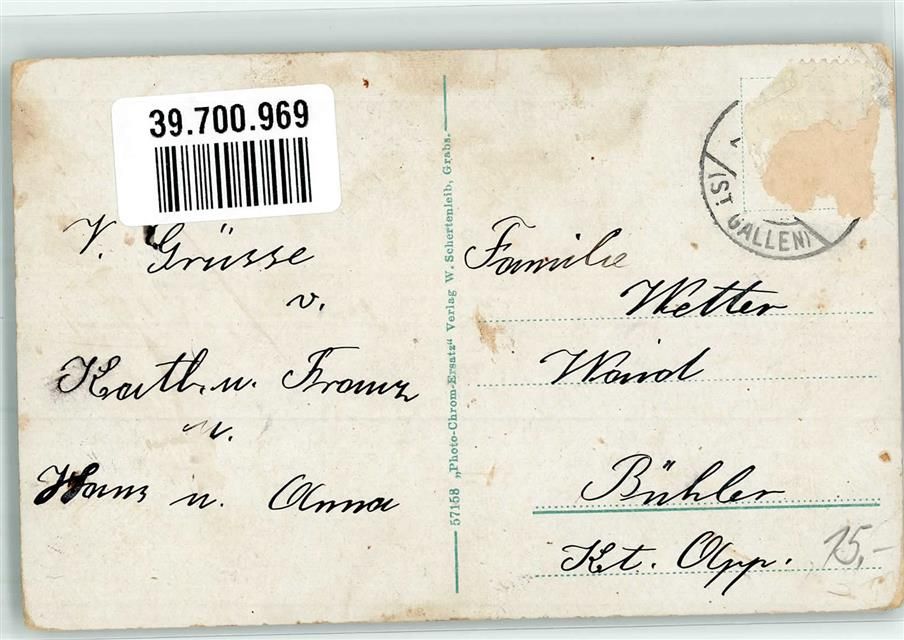 39.700.969
V. Grüsse
v.
Kath. u. Franz
u.
Hans u. Anna
57158 „Photo-Chrom-Ersatz“ Verlag W. Schertenleib, Grabs.
(ST GALLEN)
Familie
Wetter
Waid
Bühler
Kt. App.
15,-